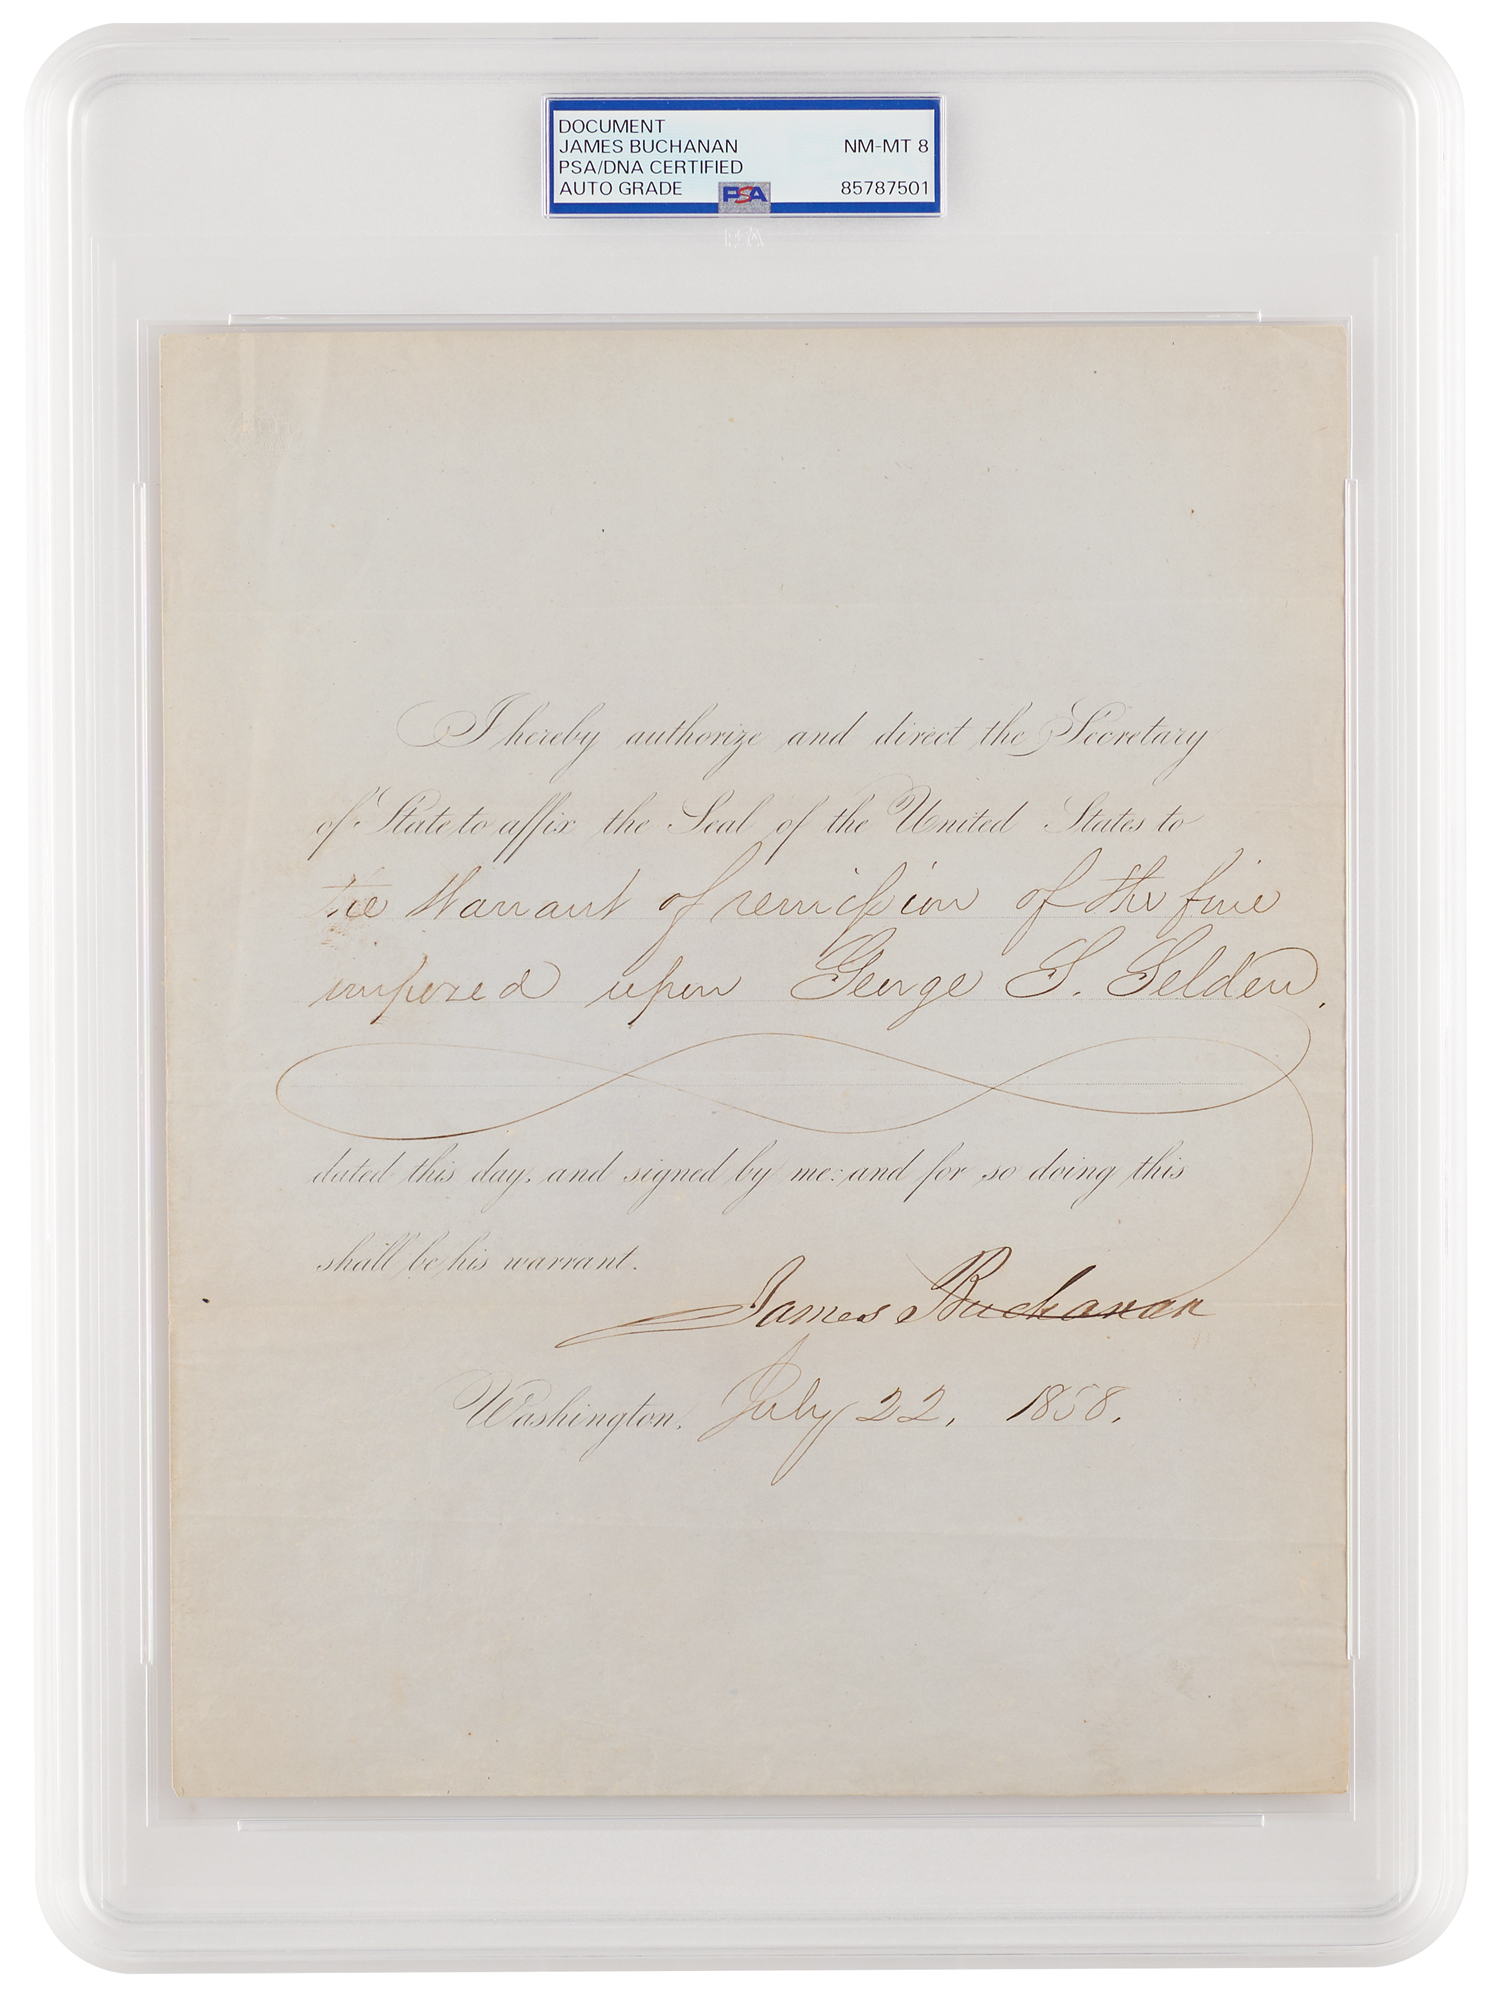 DOCUMENT
JAMES BUCHANAN NM-MT 8
PSA/DNA CERTIFIED
AUTO GRADE PSA 85787501
I hereby authorize and direct the Secretary
of State to affix the Seal of the United States to
the Warrant of remission of the fine
imposed upon George S. Selden,
dated this day, and signed by me: and for so doing this
shall be his warrant.
James Buchanan
Washington, July 22, 1858.